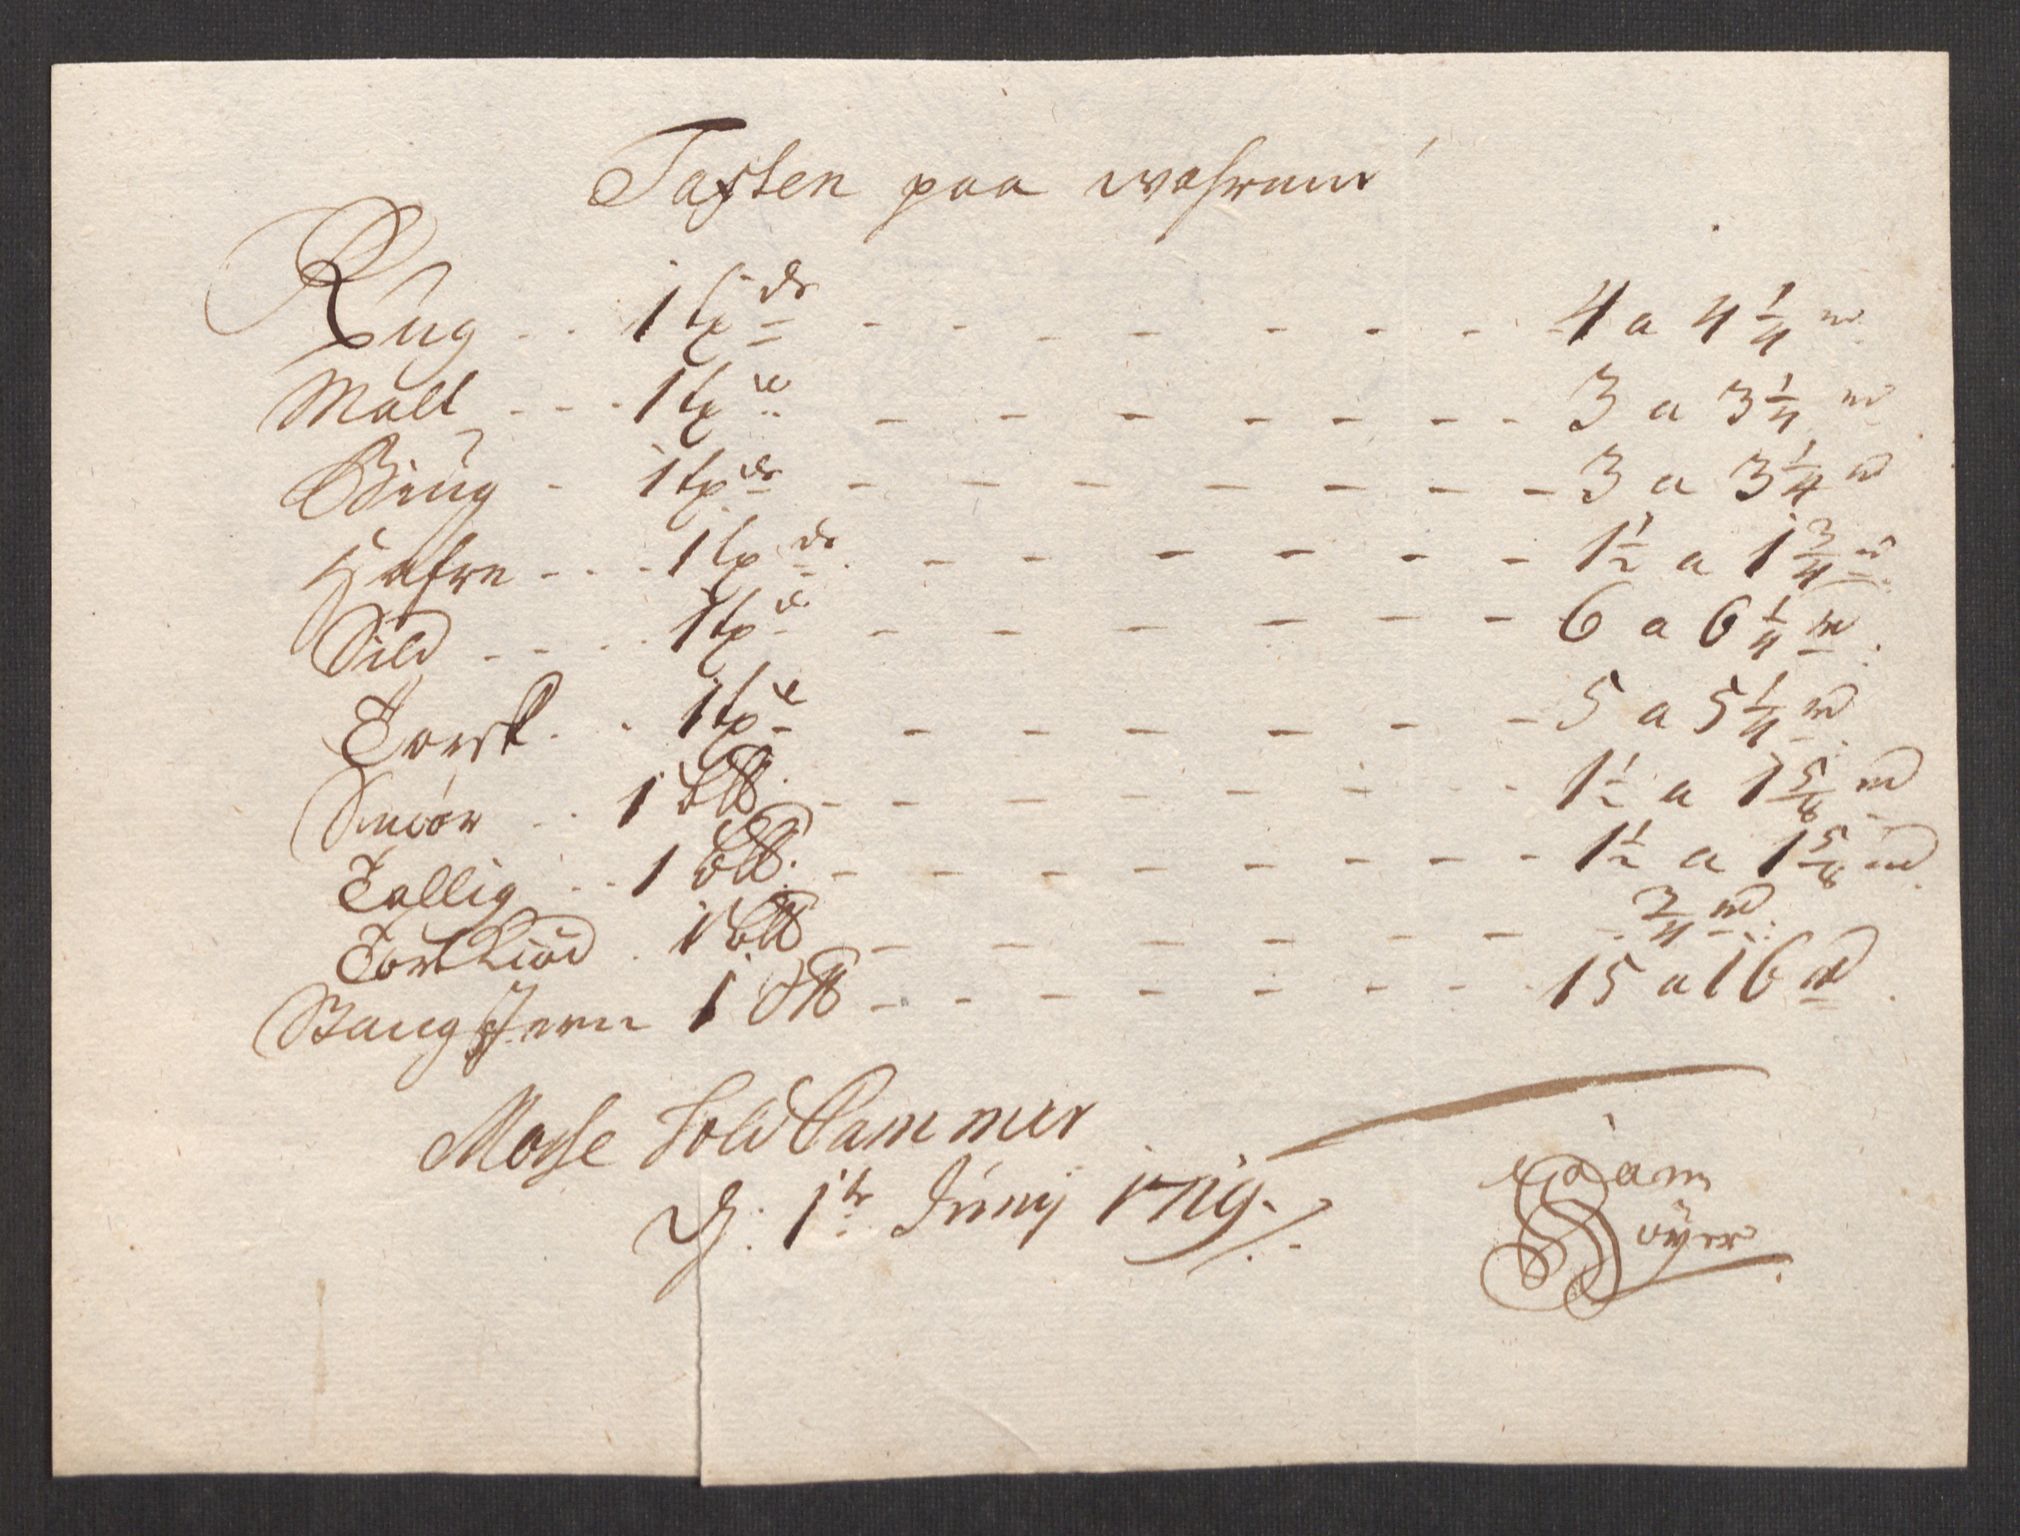 Taxten paa wahrene
Rug - - 1 tø:de - - - - - - - 4 a 4 1/4 rd
Malt - - - 1 tøe - - - - - - - 3 a 3 1/4 rd
Biug - 1 tøde - - - - - - - 3 a 3 1/4 rd
Hafre - - - 1 tø de - - - - - - 1 1/2 a 1 3/4 rd
Sild - - - - 1 tøe - - - - - - 6 a 6 1/4 rd
Torsk - - 1 tøe - - - - - - 5 a 5 1/4 rd
Smöör - - 1 b℔ - - - - - - - 1 1/2 a 1 5/8 rd
Tallig - - 1 b℔ - - - - - - - 1 1/2 a 1 5/8 rd
Tört Kiöd - 1 b℔ - - - - - - - 3/4 rd
Stang Jern 1 S℔ - - - - - - - 15 a 16 rd
Mosse Told Cammer
d: 1te Junij 1719
Adam
öyer